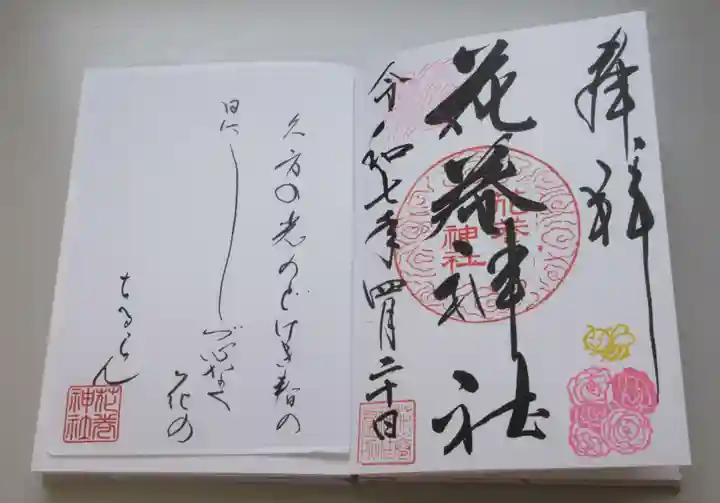 奉拝
花巻神社
花巻神社
令和七年四月二十日
久方の光のどけき春の
日にしづ心なく
花の
ちるらん
花巻神社